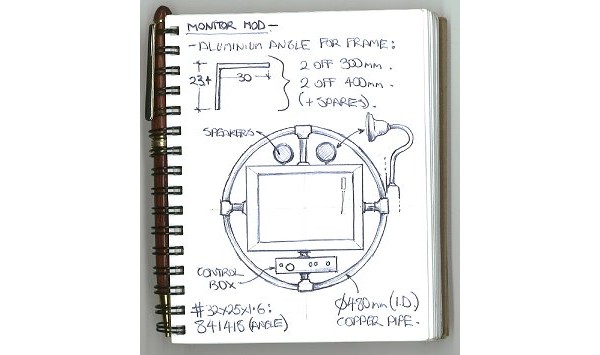 MONITOR MOD-
-ALUMINIUM ANGLE FOR FRAME:
2 OFF 300mm.
23+
30
2 OFF 400mm.
(+ SPARES).
SPEAKERS
CONTROL
BOX
#32x25x1.6:
841418 (ANGLE)
Ø480mm (I.D.)
COPPER PIPE.